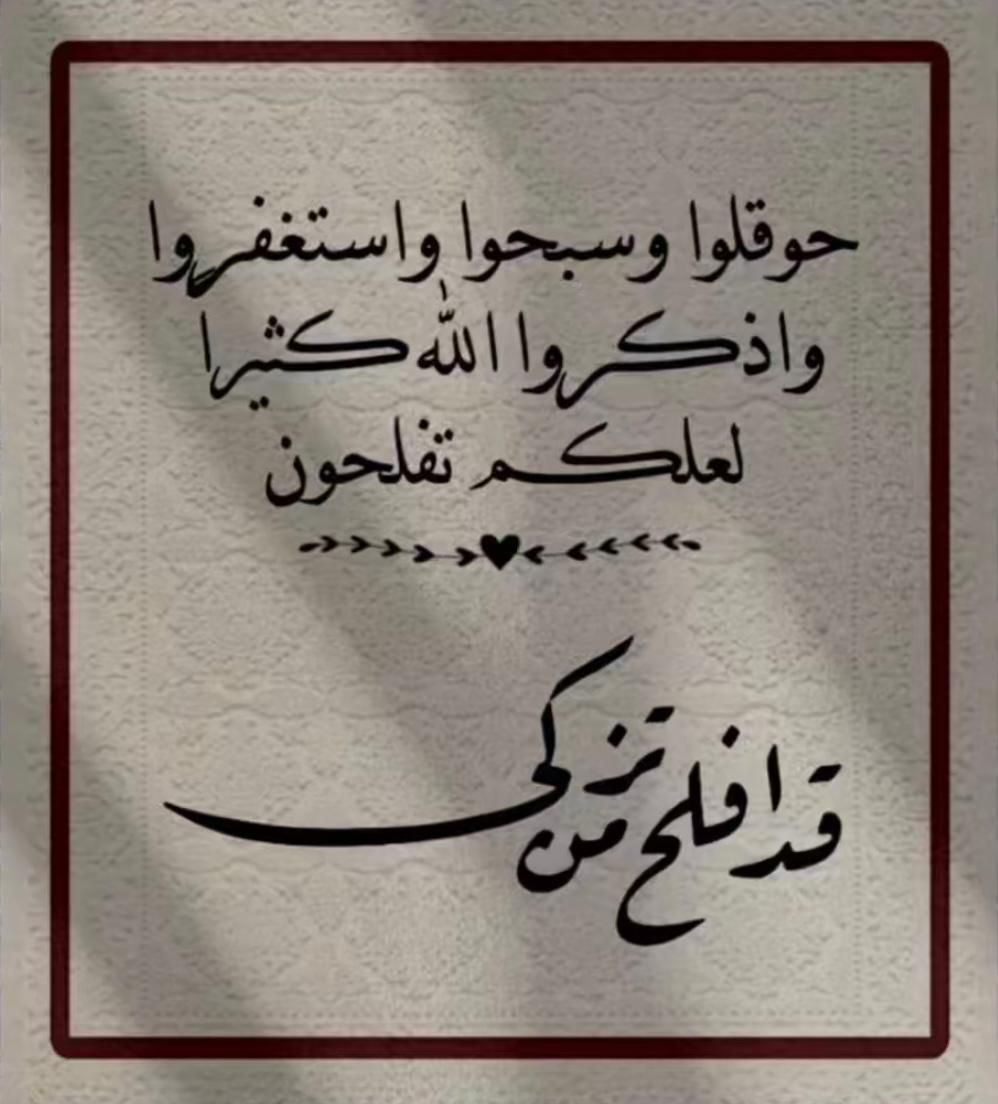 حوقلوا وسبحوا واستغفروا
واذكروا الله كثيرا
لعلكم تفلحون
قد افلح من تزكى